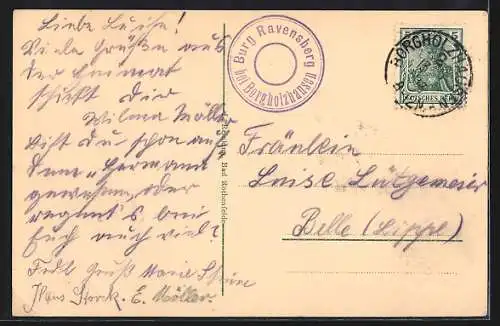 Liebe Luise!
Viele Grüße aus
der Heimat
schickt dir
Wilma Möller
Bist du schon an
dem "Hermann
gewesen, oder
regnet's bei
Euch auch viel?
Frdl Gruß Marie
Hans Storck. E. Möller
Burg Ravensberg
bei Borgholzhausen
5
DEUTSCHES REICH
BORGHOLZHAUSEN
Fräulein
Luise Lütgemeier
Belle (Lippe)